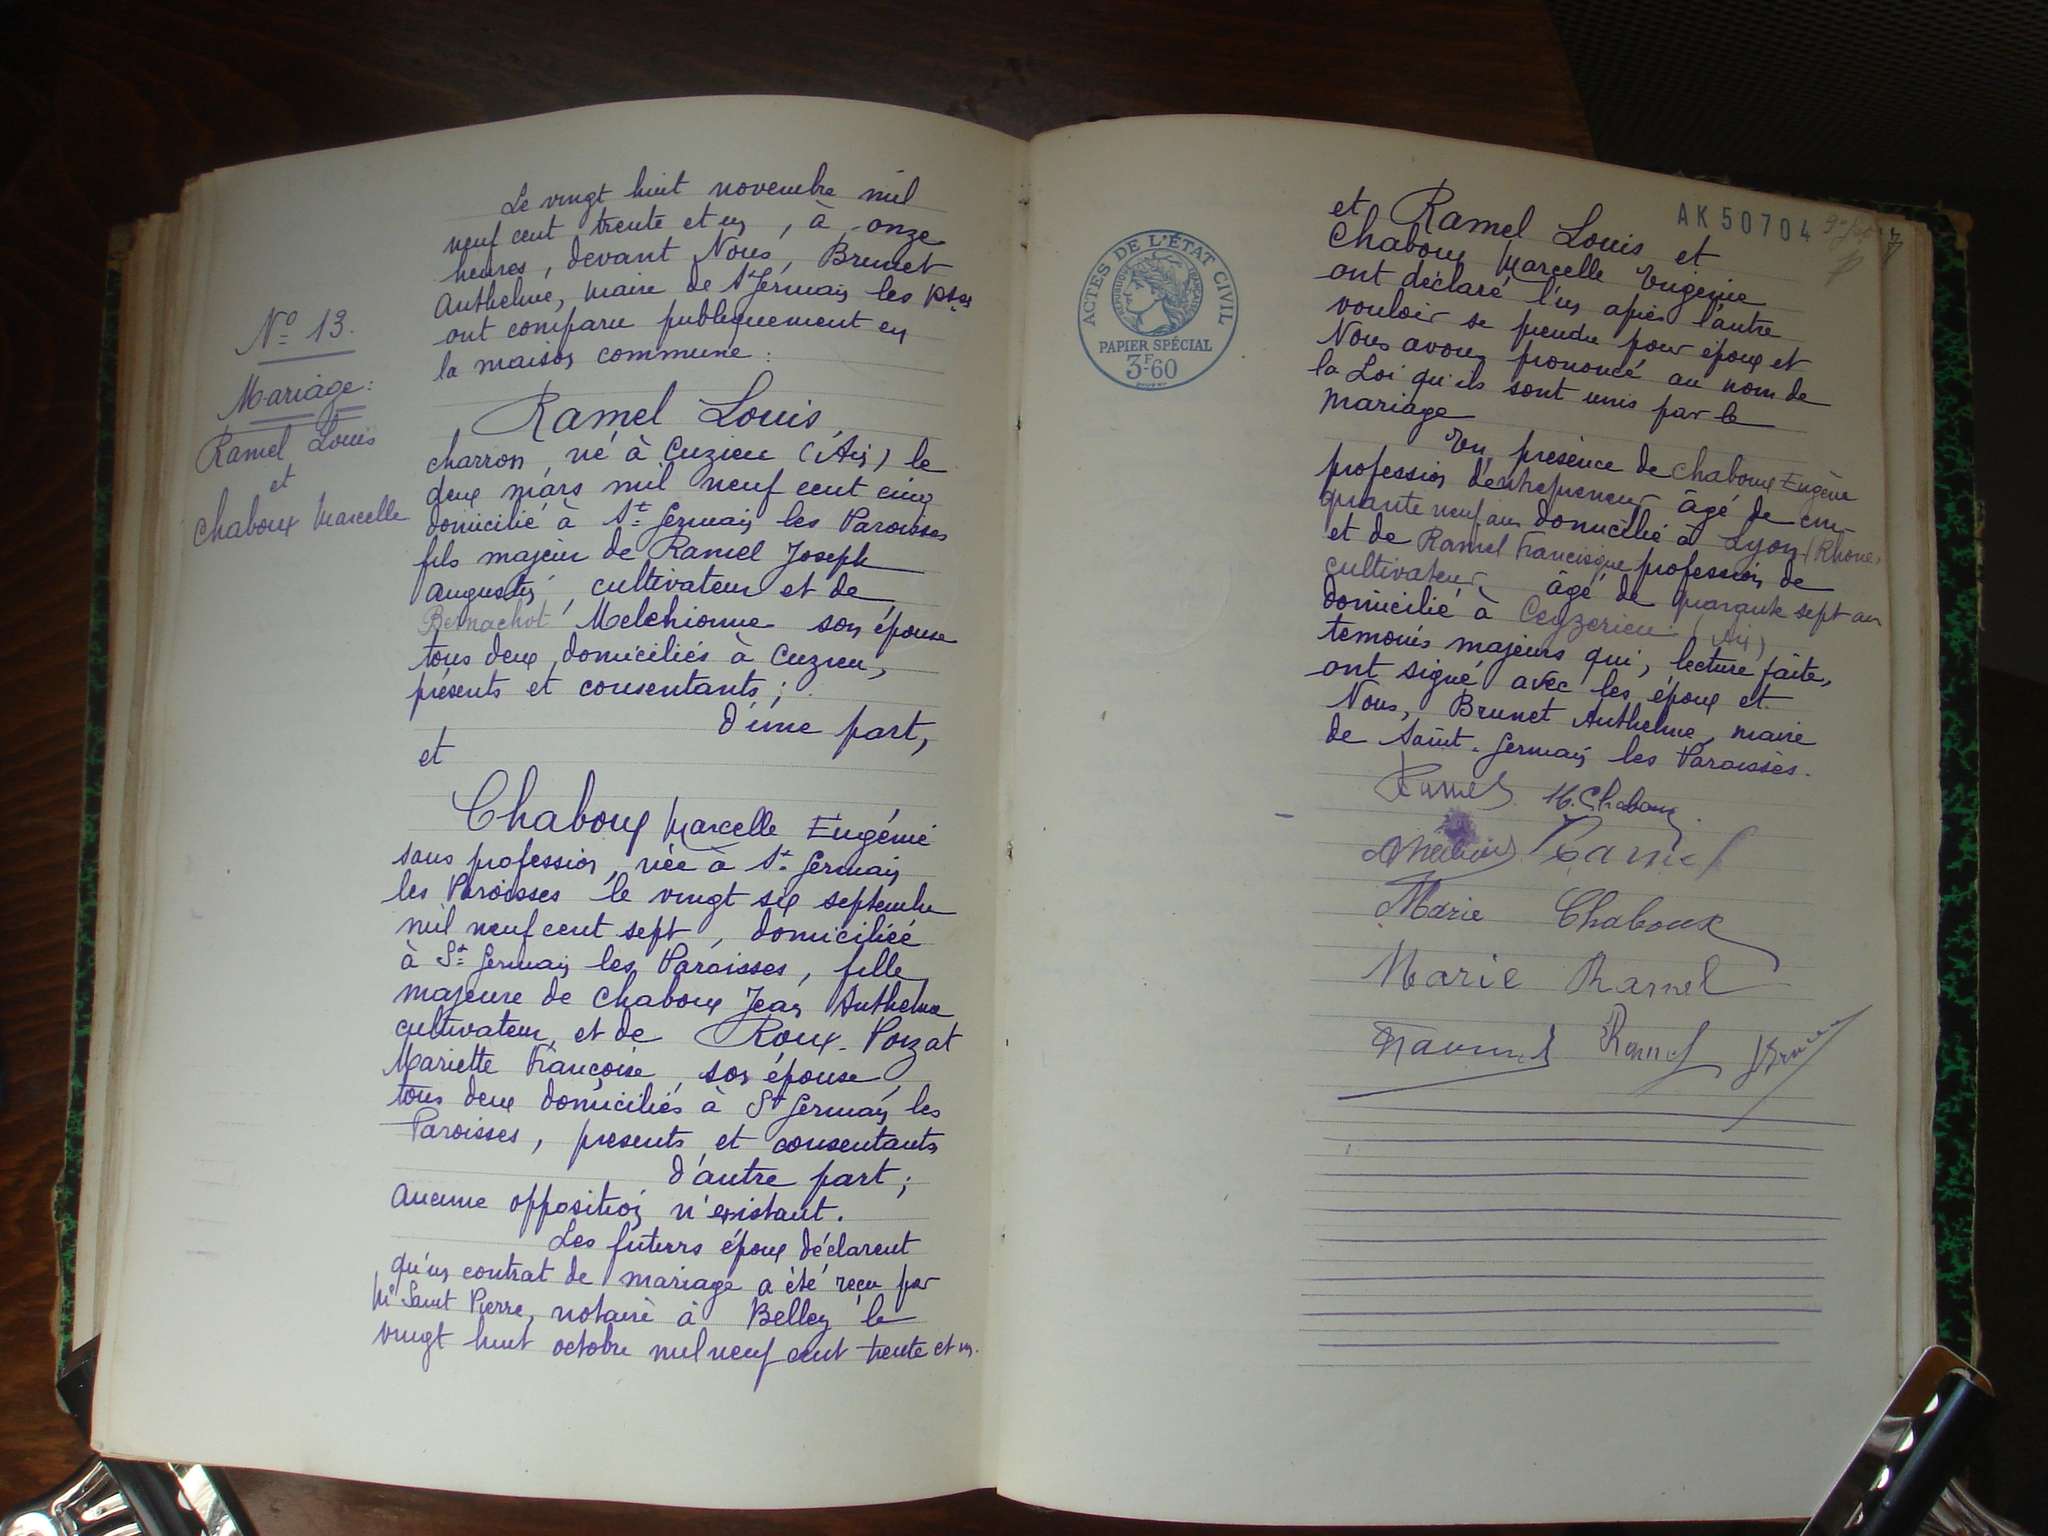 N° 13.
Mariage:
Ramel Louis
et
Chaboux Marcelle
Le vingt huit novembre mil
neuf cent trente et un, à onze
heures, devant Nous, Brunet
Anthelme, Maire de St Germain les Pses
ont comparu publiquement en
la maison commune :
Ramel Louis,
charron, né à Cuzieu (Ain) le
deux mars mil neuf cent cinq
domicilié à St Germain les Paroisses
fils majeur de Ramel Joseph
Augustin, cultivateur et de
Bernachot Melchionne son épouse
tous deux domiciliés à Cuzieu,
présents et consentants ;
d'une part,
et
Chaboux Marcelle Eugénie
sans profession, née à St Germain
les Paroisses le vingt six septembre
mil neuf cent sept, domiciliée
à St Germain les Paroisses, fille
majeure de Chaboux Jean Anthelme
cultivateur, et de Roux-Poizat
Mariette Françoise, son épouse,
tous deux domiciliés à St Germain les
Paroisses, présents et consentants
d'autre part ;
aucune opposition n'existant.
Les futurs époux déclarent
qu'un contrat de mariage a été reçu par
Me Saint Pierre, notaire à Belley le
vingt huit octobre mil neuf cent trente et un.
ACTES DE L'ÉTAT CIVIL
RÉPUBLIQUE FRANÇAISE
PAPIER SPÉCIAL
3F.60
AK 50704
et Ramel Louis et
Chaboux Marcelle Eugénie
ont déclaré l'un après l'autre
vouloir se prendre pour époux et
Nous avons prononcé au nom de
la Loi qu'ils sont unis par le
mariage
En présence de Chaboux Eugène
profession d'entrepreneur âgé de cin-
quante neuf ans domicilié à Lyon (Rhône)
et de Ramel Francisque profession de
cultivateur âgé de quarante sept ans
domicilié à Ceyzerieu (Ain)
témoins majeurs qui, lecture faite,
ont signé avec les époux et
Nous, Brunet Anthelme, maire
de Saint-Germain les Paroisses.
Ramel M. Chaboux
Ramel
Marie Chaboux
Marie Ramel
Ramel